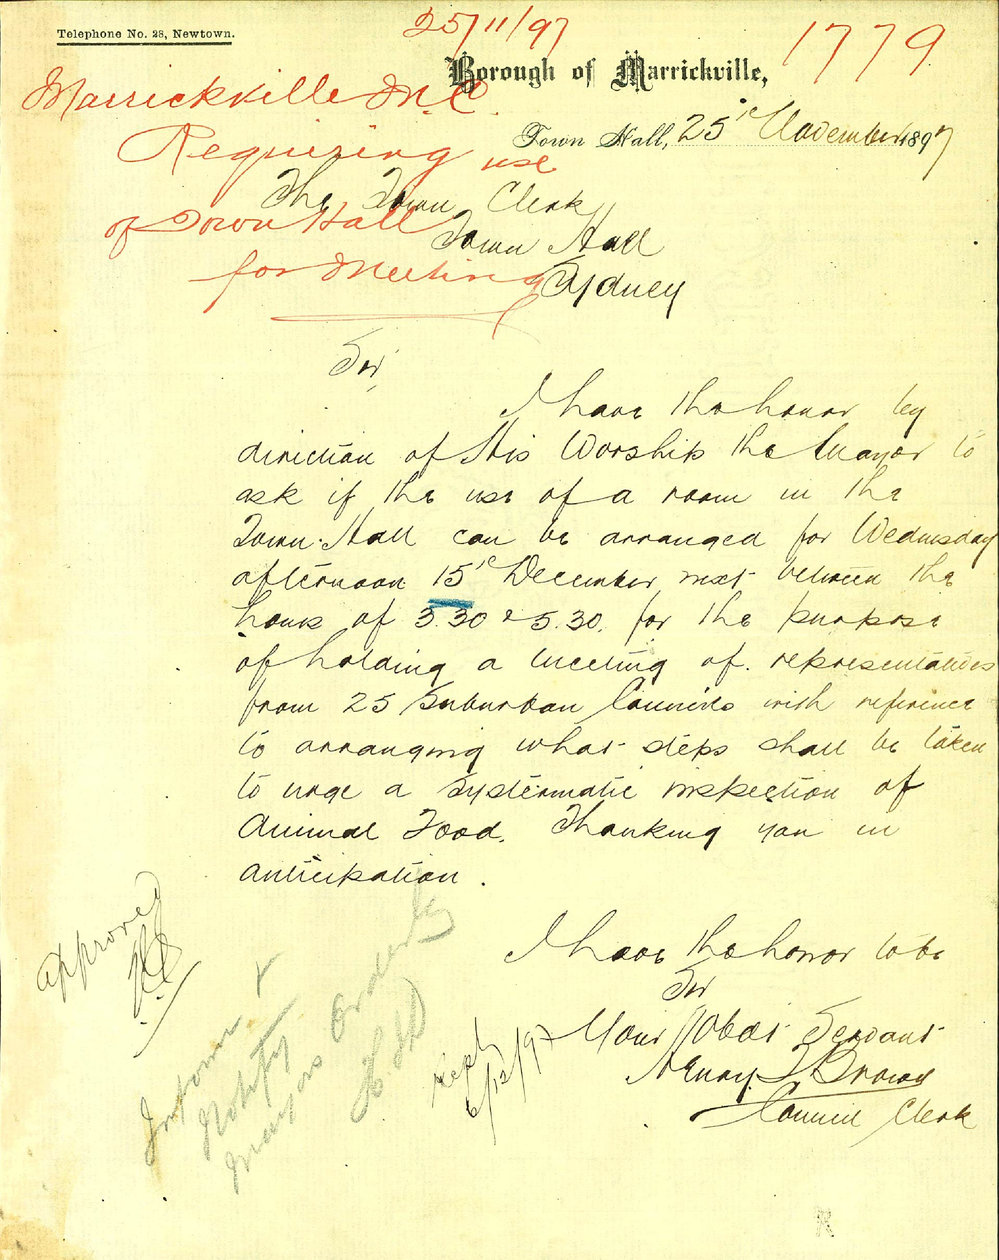 Telephone No. 28, Newtown.
25/11/97
1779
Borough of Marrickville,
Marrickville M.C.
Requiring use
of Town Hall
for Meeting
Town Hall, 25th November 1897
The Town Clerk
Town Hall
Sydney
Sir,
I have the honor by
direction of His Worship the Mayor to
ask if the use of a room in the
Town Hall can be arranged for Wednesday
afternoon 15th December next between the
hours of 3.30 & 5.30. for the purpose
of holding a meeting of representatives
from 25 Suburban Councils with reference
to arranging what steps shall be taken
to urge a systematic inspection of
Animal Food. Thanking you in
anticipation.
I have the honor to be
Sir
Your Obdt Servant
Henry Brown
Council Clerk
approved
Inform &
Notify
Mayors Orderly
Repld
6/12/97